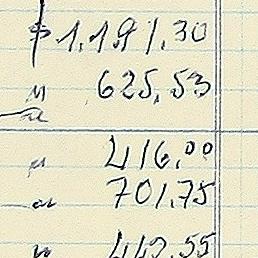 $ 1,191.30
" 625.53
" 416.00
" 701.75
" 442.55